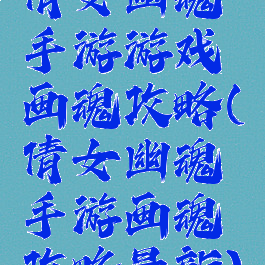 倩女幽魂
手游游戏
画魂攻略(
倩女幽魂
手游画魂
攻略最新)